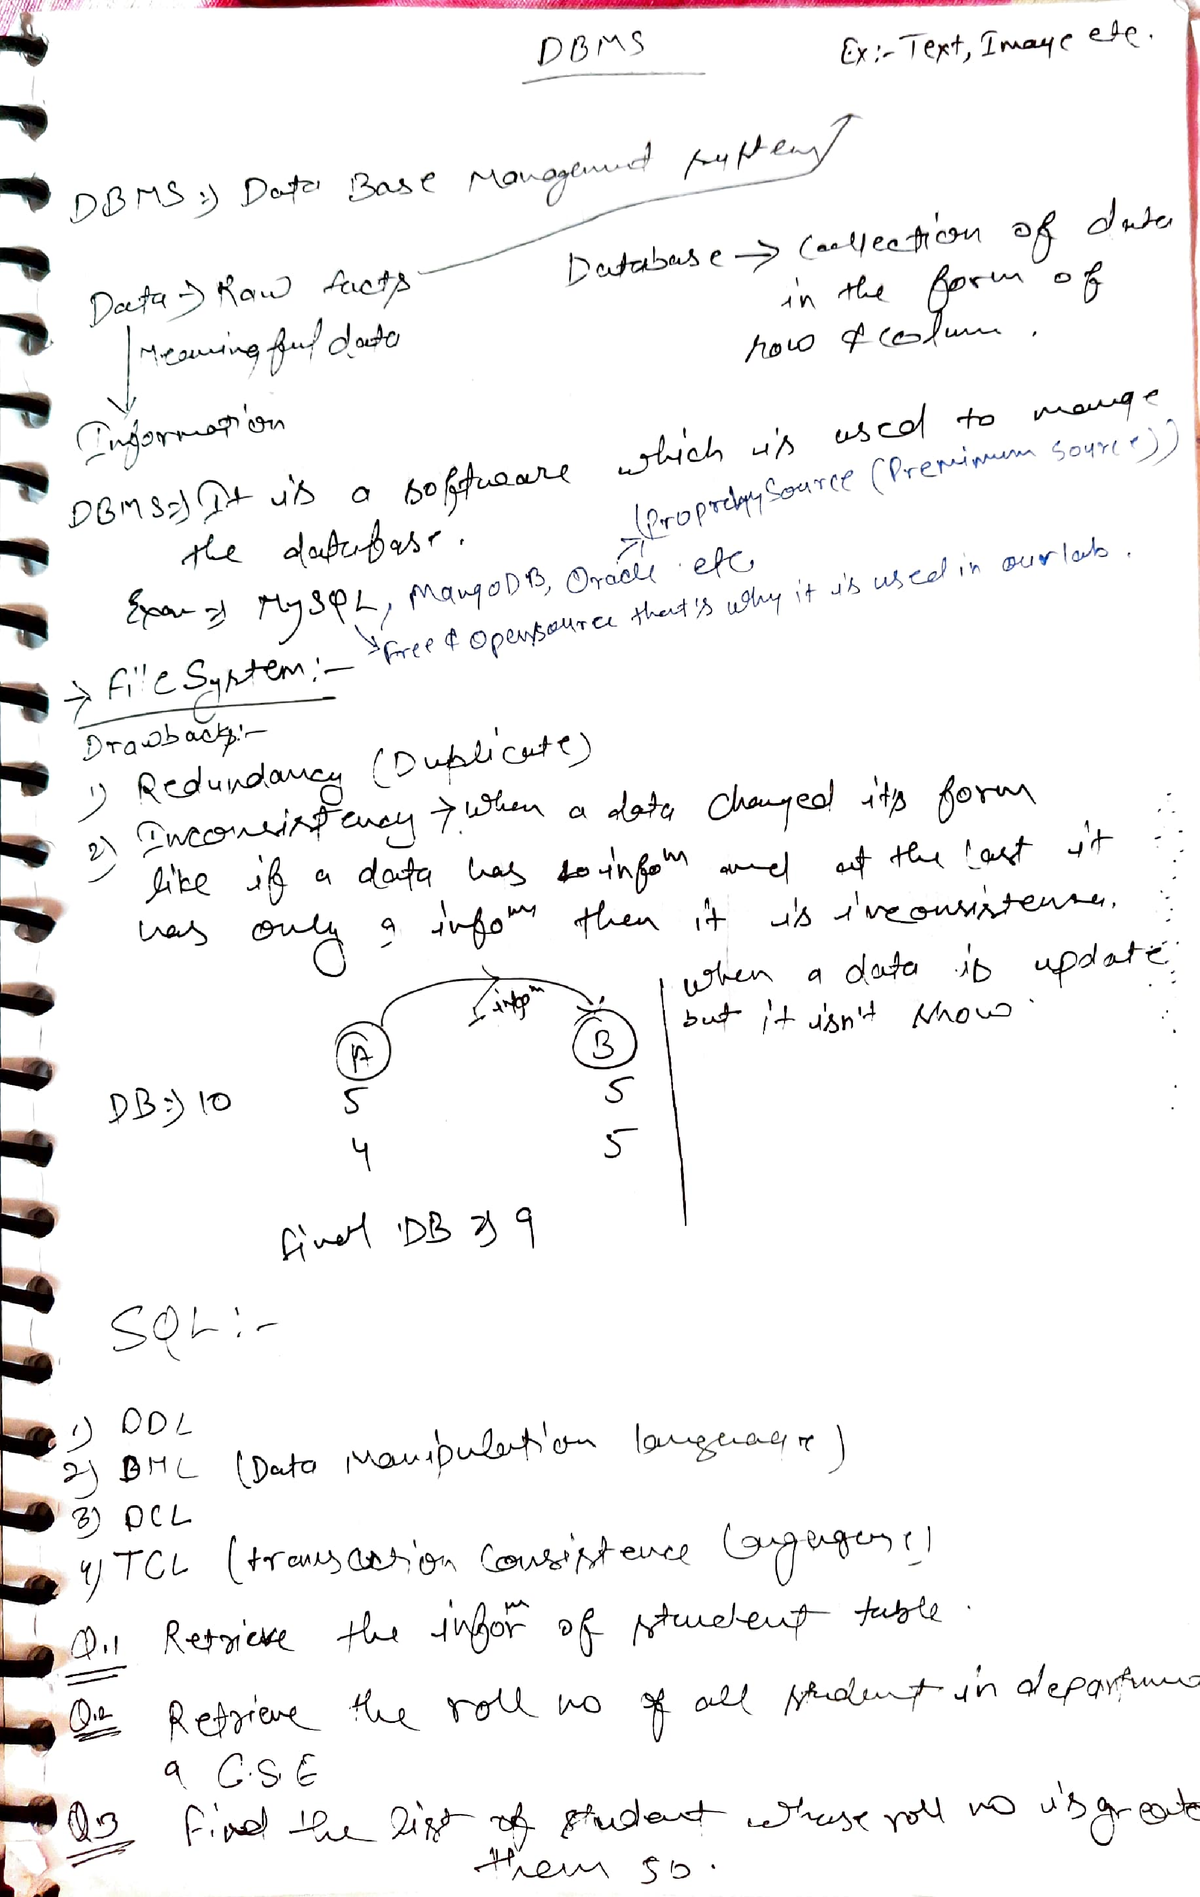 DBMS
Ex:- Text, Image etc.
DBMS :⇒ Data Base Management system
Data ⇒ Raw facts
Meaningful data
Information
Database → Collection of data
in the form of
row & column.
DBMS ⇒ It is a software which is used to mange
the database.
(Proprehy Source (Premimum Source))
Exam ⇒ MySQL, MangoDB, Oracle etc
Free & Opensource that's why it is used in our lab.
→ File System :-
Drawbacks:-
1) Redundancy (Duplicate)
2) Inconsistency → When a data changed its form
like if a data has 10 infoᵐ and at the last it
has only 9 infoᵐ then it is inconsistence.
when a data is update
but it isn't show.
I infoᵐ
A B
DB ⇒ 10 5 5
4 5
final DB ⇒ 9
SQL :-
1) DDL
2) DML (Data Manipulation language)
3) DCL
4) TCL (transaction Consistence
Q.1 Retrieve the inforᵐ of student table.
Q.2 Retrieve the roll no of all student in
a C.S.E
Q.3 Find the list of student whose roll no is greate
them 50.